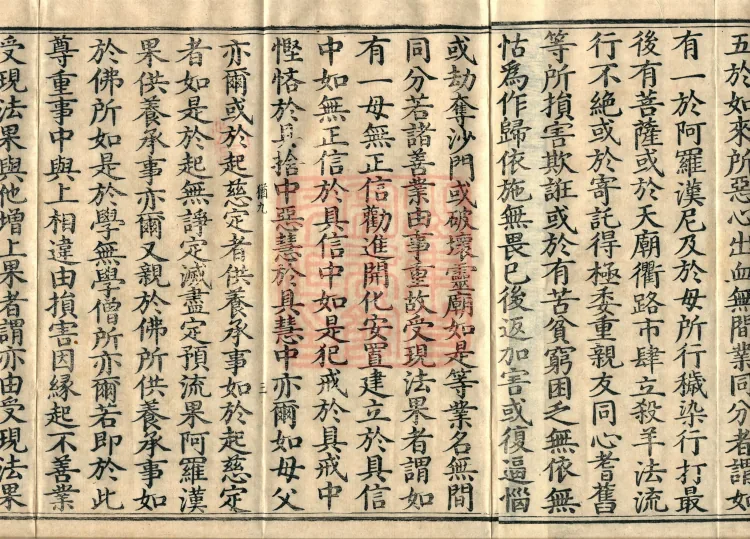 五於如來所惡心出血無間業同分者謂如
有一於阿羅漢尼及於母所行穢染行打最
後有菩薩或於天廟衢路市肆立殺羊法流
行不絕或於寄託得極委重親友同心耆舊
等所損害欺誑或於有苦貧窮困乏無依無
怙爲作歸依施無畏已後返加害或復逼惱
或劫奪沙門或破壞靈廟如是等業名無間
同分若諸善業由事重故受現法果者謂如
有一母無正信勸進開化安置建立於具信
中如無正信於具信中如是犯戒於具戒中
慳悋於具捨中惡慧於具慧中亦爾如母父
猶九
三
亦爾或於起慈定者供養承事如於起慈定
者如是於起無諍定滅盡定預流果阿羅漢
果供養承事亦爾又親於佛所供養承事如
於佛所如是於學無學僧所亦爾若即於此
尊重事中與上相違由損害因緣起不善業
受現法果與他增上果者謂亦由受現法果